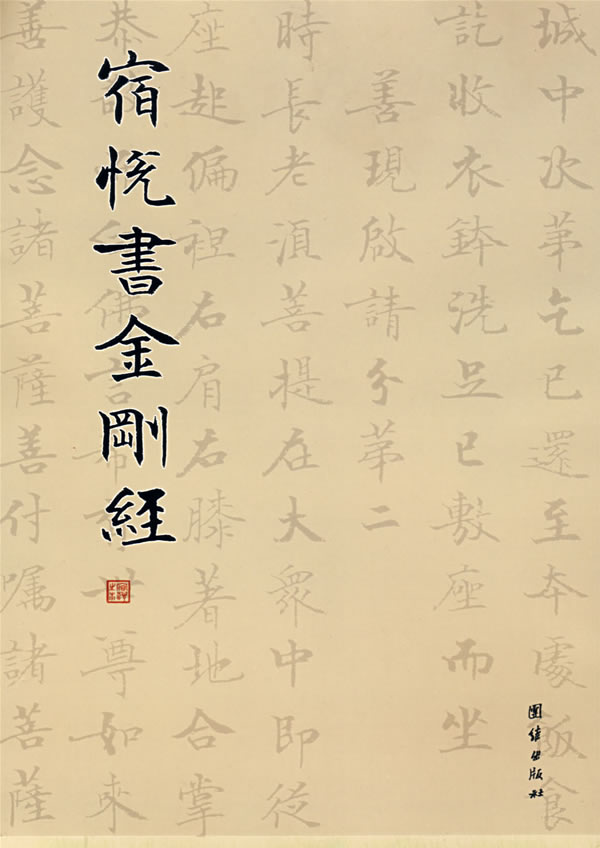 宿悦書金剛經
城中次苐乞已還至本處飯食
訖收衣鉢洗足已敷座而坐
善現啟請分苐二
時長老湏菩提在大眾中即從
座起偏袒右肩右膝著地合掌
恭敬佛言希有世尊如來
善護念諸菩薩善付囑諸菩薩
團結出版社